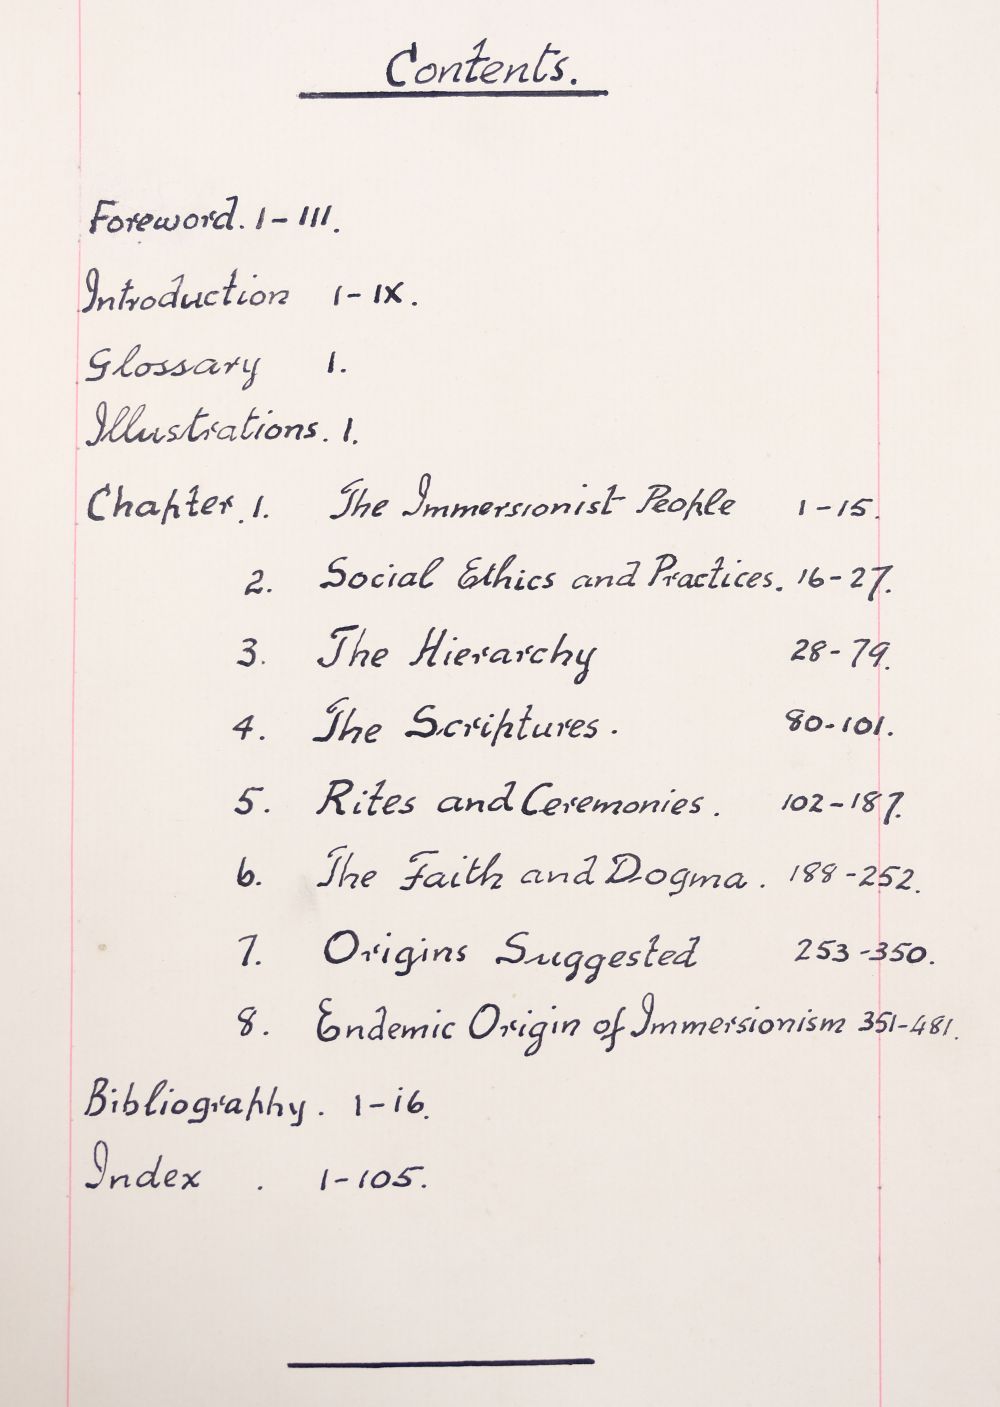 Contents.
Foreword. I-III.
Introduction I-IX.
Glossary 1.
Illustrations. 1.
Chapter. 1. The Immersionist People 1-15.
2. Social Ethics and Practices. 16-27.
3. The Hierarchy 28-79.
4. The Scriptures. 80-101.
5. Rites and Ceremonies. 102-187.
6. The Faith and Dogma. 188-252.
7. Origins Suggested 253-350.
8. Endemic Origin of Immersionism 351-481.
Bibliography. 1-16.
Index . 1-105.